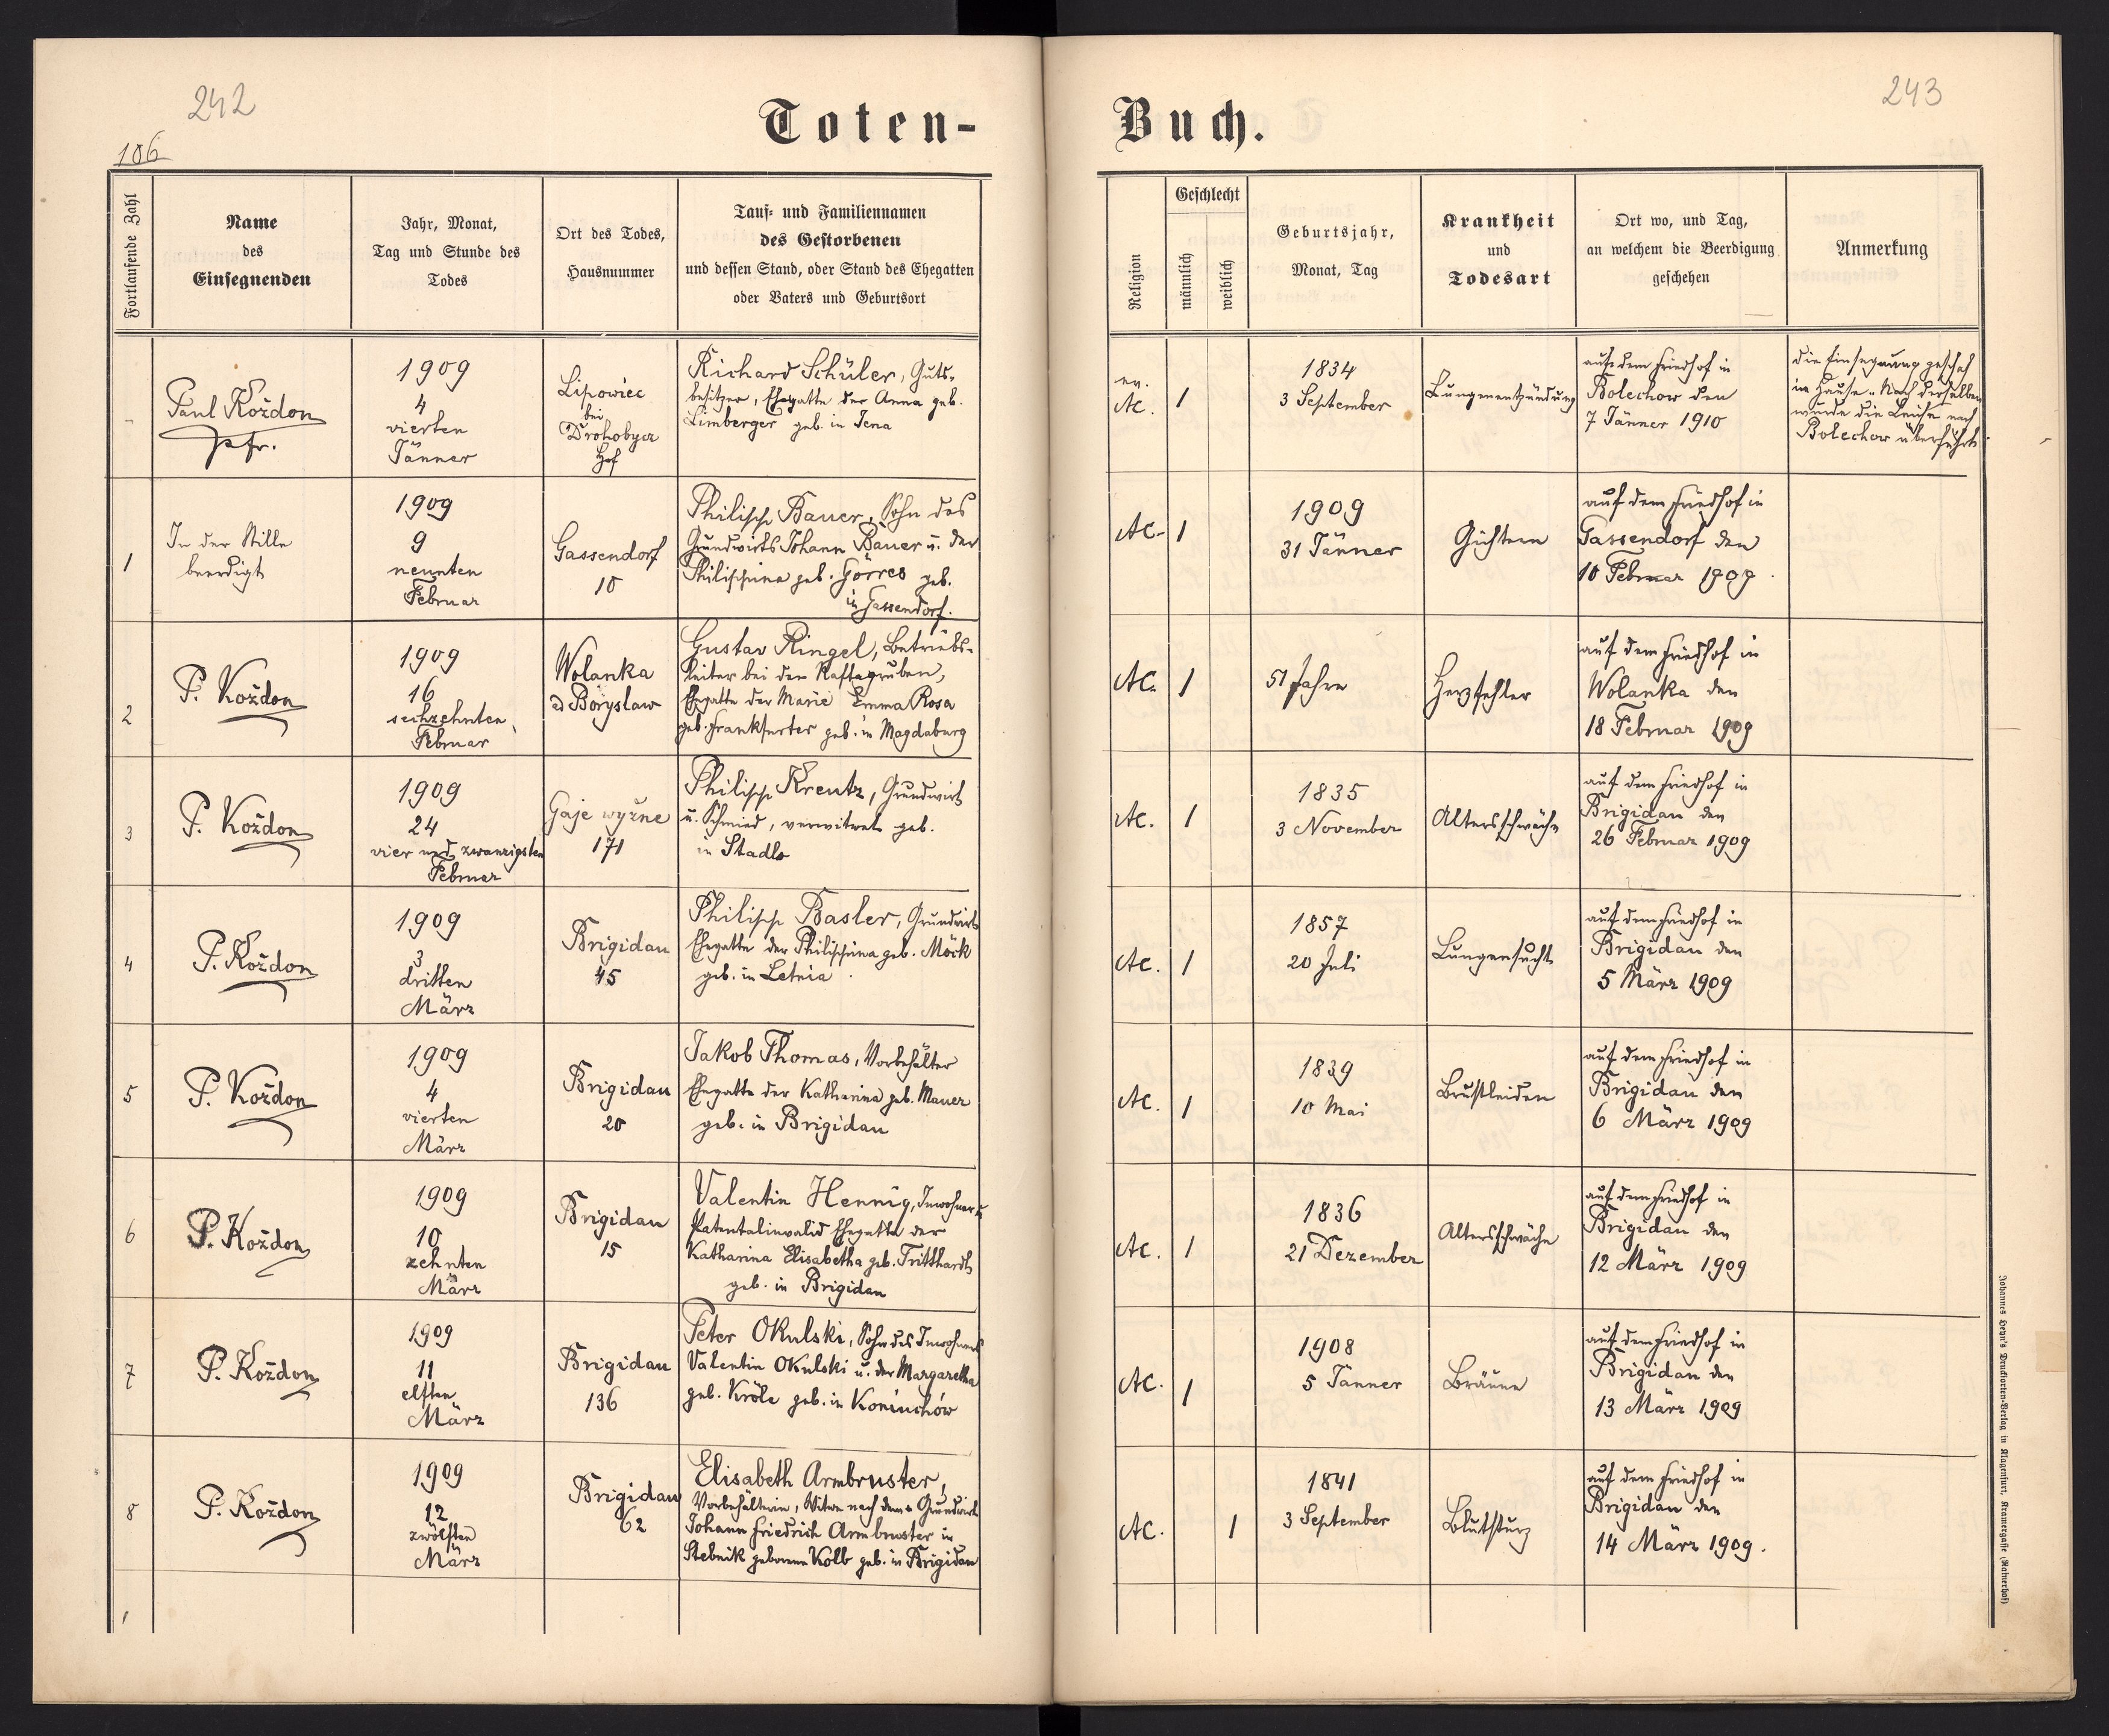 242
106
Toten-
Fortlaufende Zahl
Name
des
Einsegnenden
Jahr, Monat,
Tag und Stunde des
Todes
Ort des Todes,
Hausnummer
Tauf- und Familiennamen
des Gestorbenen
und dessen Stand, oder Stand des Ehegatten
oder Vaters und Geburtsort
-
Paul Koždon
Pfr.
1909
4
vierten
Jänner
Lipowiec
bei
Drohobycz
Hof
Richard Schüler, Guts-
besitzer, Ehegatte der Anna geb.
Limberger geb. in Jena
1
In der Stille
beerdigt
1909
9
neunten
Februar
Gassendorf
10
Philipp Bauer, Sohn des
Grundwirts Johann Bauer u. der
Philippina geb. Görres geb.
in Gassendorf.
2
P. Koždon
1909
16
sechzehnten
Februar
Wolanka
ad Boryslaw
Gustav Ringel, Betriebs-
leiter bei den Naftagruben,
Ehegatte der Marie Emma Rosa
geb. Frankfurter geb. in Magdeburg
3
P. Koždon
1909
24
vier und zwanzigsten
Februar
Gaje wyżne
171
Philipp Kreutz, Grundwirt
u. Schmied, verwitwet geb.
in Stadlo
4
P. Koždon
1909
3
dritten
März
Brigidau
45
Philipp Basler, Grundwirt
Ehegatte der Philippina geb. Möck
geb. in Letnia
5
P. Koždon
1909
4
vierten
März
Brigidau
20
Jakob Thomas, Vorbehälter
Ehegatte der Katharina geb. Mauer
geb. in Brigidau
6
P. Koždon
1909
10
zehnten
März
Brigidau
15
Valentin Hennig, Inwohner u.
Patentalinvalid Ehegatte der
Katharina Elisabetha geb. Tritthardt
geb. in Brigidau
7
P. Koždon
1909
11
elften
März
Brigidau
136
Peter Okulski, Sohn des Inwohners
Valentin Okulski u. der Margaretha
geb. Kröle geb. in Koniuchów
8
P. Koždon
1909
12
zwölften
März
Brigidau
62
Elisabeth Armbruster,
Vorbehälterin, Witwe nach dem Grundwirt
Johann Friedrich Armbruster in
Stebnik geborene Kolb geb. in Brigidau
243
Buch.
Religion
Geschlecht
männlich
weiblich
Geburtsjahr,
Monat, Tag
Krankheit
und
Todesart
Ort wo, und Tag,
an welchem die Beerdigung
geschehen
Anmerkung
ev.
AC.
1
1834
3 September
Lungenentzündung
auf dem Friedhof in
Bolechow den
7 Jänner 1910
Die Einsegnung geschah
im Hause. Nach derselben
wurde die Leiche nach
Bolechow überführt
AC.
1
1909
31 Jänner
Gichtern
auf dem Friedhof in
Gassendorf den
10 Februar 1909.
AC.
1
51 Jahre
Herzfehler
auf dem Friedhof in
Wolanka den
18 Februar 1909
AC.
1
1835
3 November
Altersschwäche
auf dem Friedhof in
Brigidau den
26 Februar 1909
AC.
1
1857
20 Juli
Lungensucht
auf dem Friedhof in
Brigidau den
5 März 1909
AC.
1
1839
10 Mai
Brustleiden
auf dem Friedhof in
Brigidau den
6 März 1909
AC.
1
1836
21 Dezember
Altersschwäche
auf dem Friedhof in
Brigidau den
12 März 1909
AC.
1
1908
5 Jänner
Bräune
auf dem Friedhof in
Brigidau den
13 März 1909
AC.
1
1841
3 September
Blutsturz
auf dem Friedhof in
Brigidau den
14 März 1909.
Johannes Heyn's Drucksorten-Verlag in Klagenfurt, Kramergasse (Rainerhof)